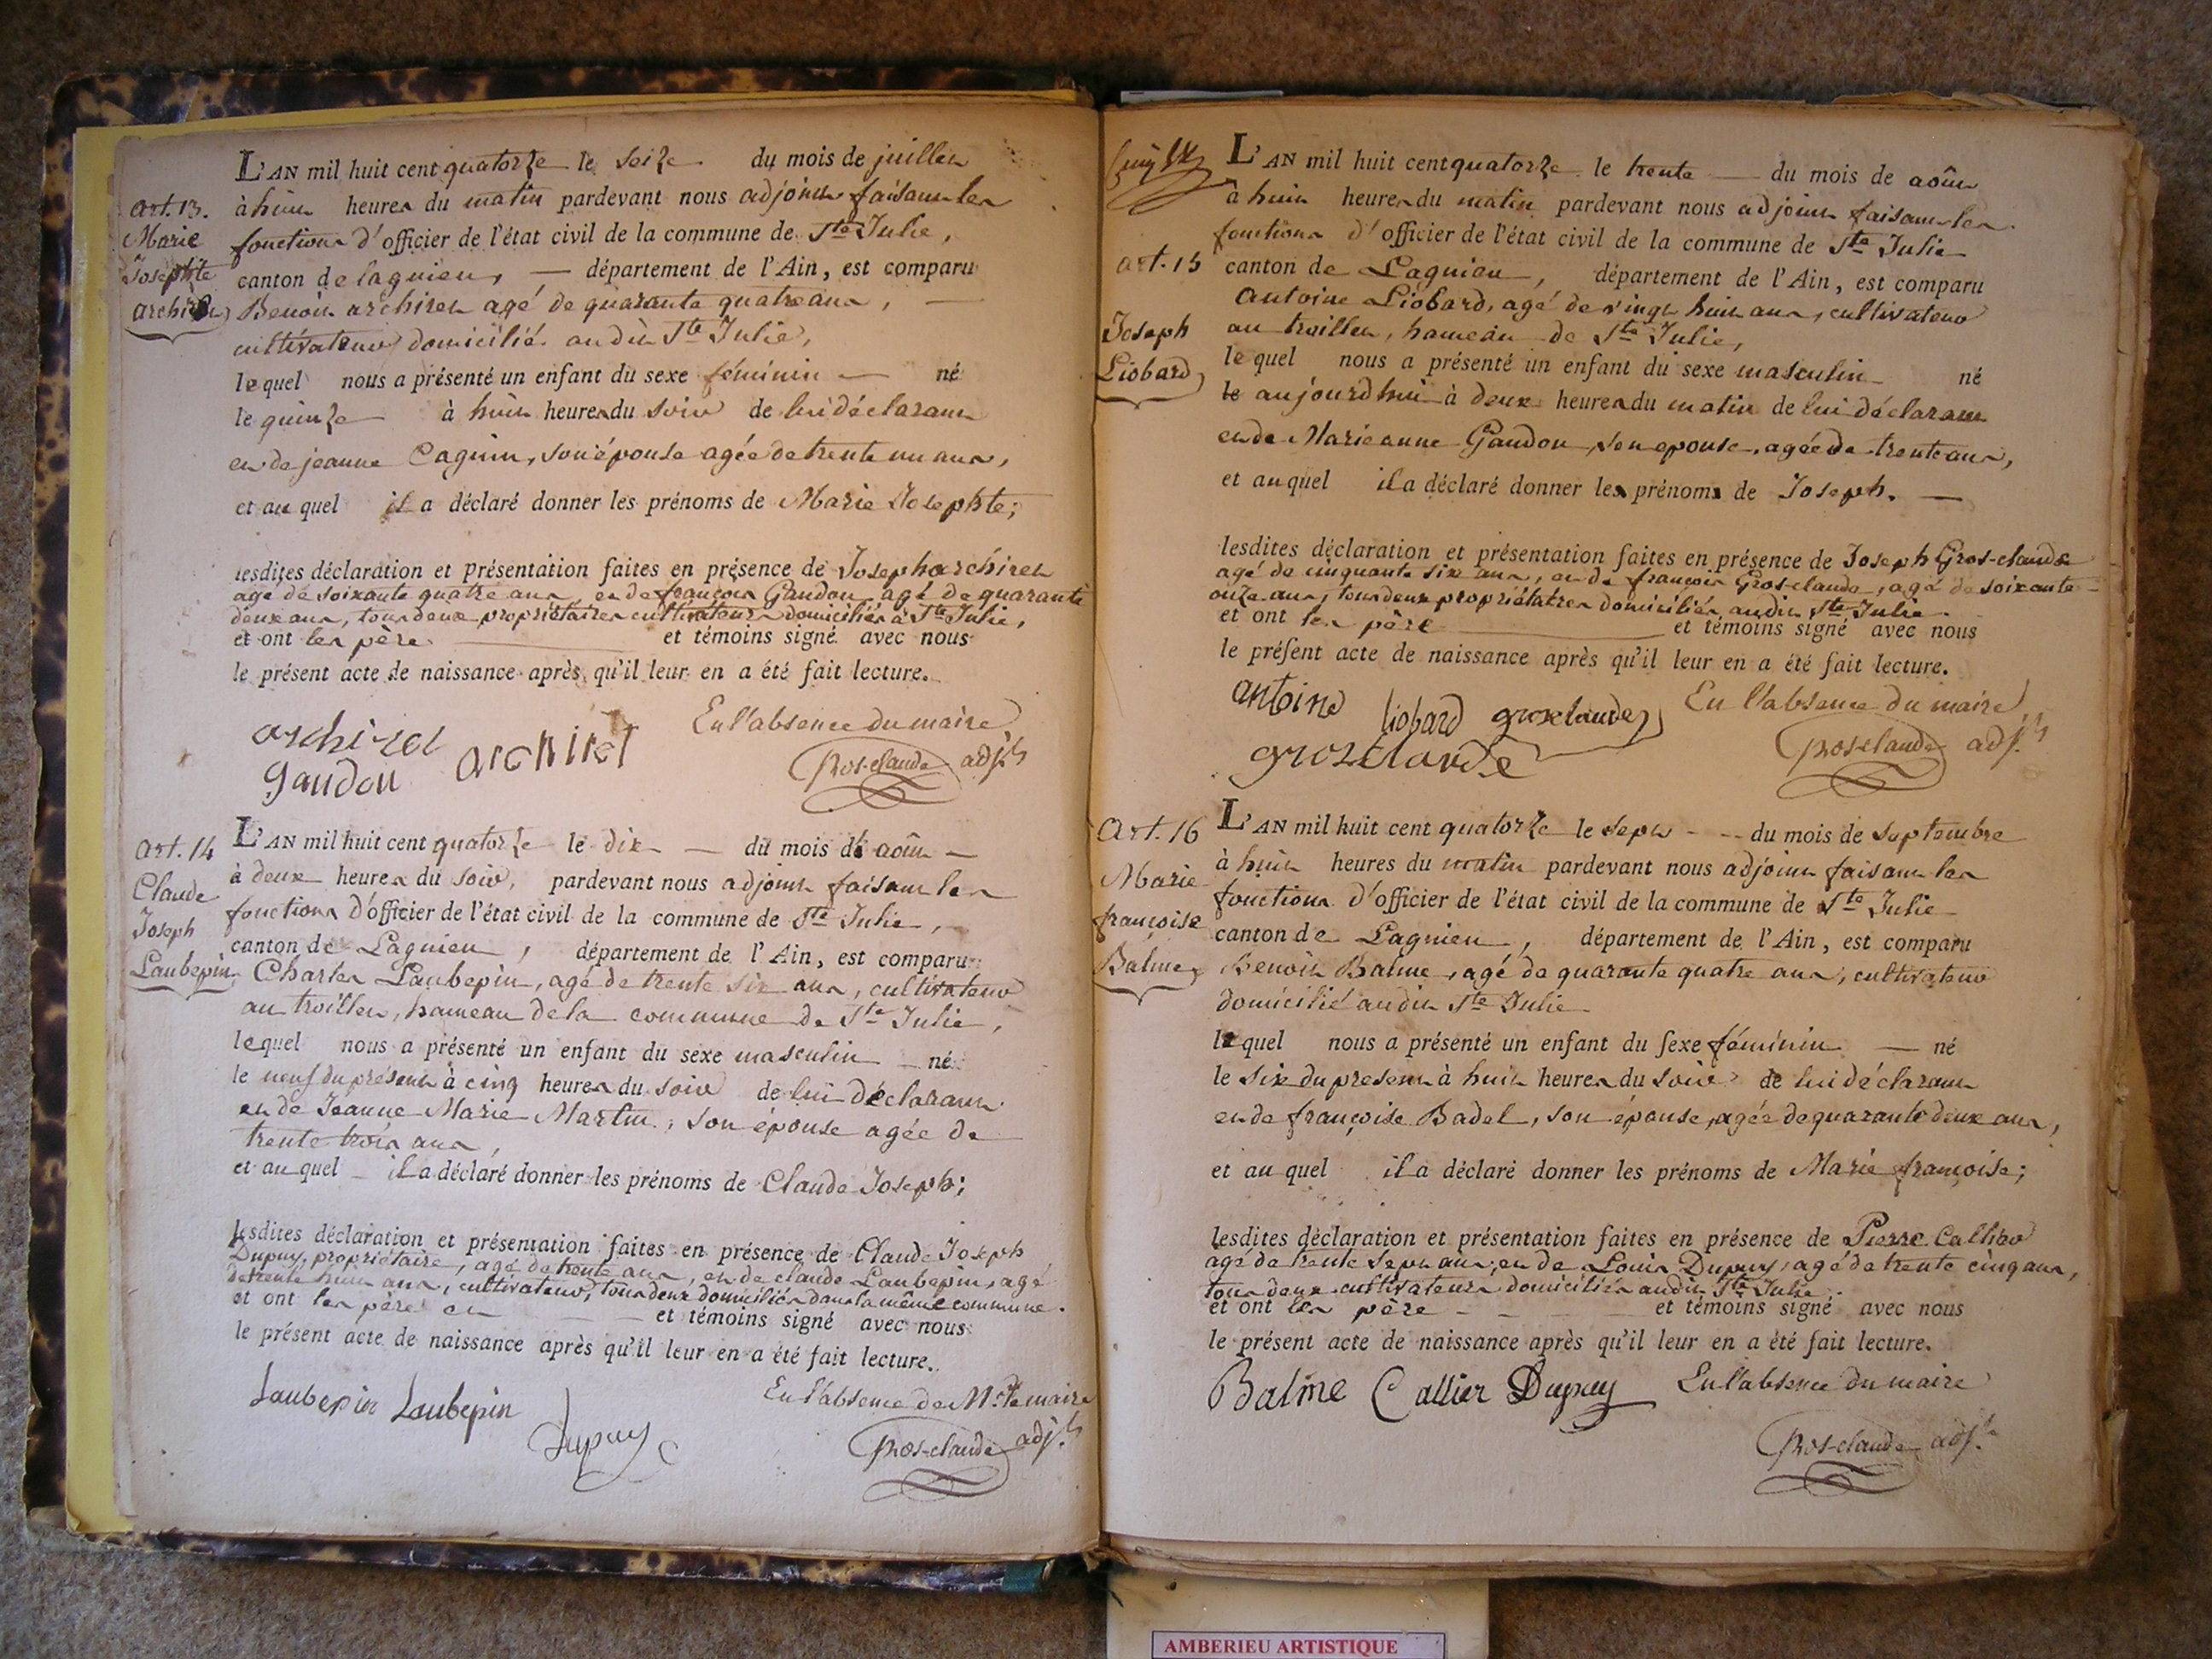 L'AN mil huit cent quatorze le seize du mois de juillet
art. 13. à huit heures du matin pardevant nous adjoint faisant les
Marie fonctions d'officier de l'état civil de la commune de Ste Julie,
Josephte canton de lagnieu, — département de l'Ain, est comparu
archiret Benoit archiret agé de quarante quatre ans, —
cultivateur domicilié audit Ste Julie,
lequel nous a présenté un enfant du sexe féminin — né
le quinze à huit heures du soir de lui déclarant
et de jeanne Caguin, son épouse agée de trente un ans,
et auquel il a déclaré donner les prénoms de Marie Josephte;
lesdites déclaration et présentation faites en présence de Joseph archiret
agé de soixante quatre ans, et de françois Gaudon agé de quarante
deux ans, tous deux propriétaires cultivateurs domiciliés à Ste Julie,
et ont les père et témoins signé avec nous
le présent acte de naissance après qu'il leur en a été fait lecture.
archiret archiret En l'absence du maire
gaudon Groselaude adjt
art. 14 L'AN mil huit cent quatorze le dix — du mois de août —
Claude à deux heures du soir, pardevant nous adjoint faisant les
Joseph fonctions d'officier de l'état civil de la commune de Ste Julie,
Laubepin canton de Lagnieu, département de l'Ain, est comparu
Charles Laubepin, agé de trente six ans, cultivateur
au troillet, hameau de la commune de Ste Julie,
lequel nous a présenté un enfant du sexe masculin — né
le neuf du présent à cinq heures du soir de lui déclarant
et de Jeanne Marie Martin, son épouse agée de
trente trois ans,
et auquel — il a déclaré donner les prénoms de Claude Joseph;
lesdites déclaration et présentation faites en présence de Claude Joseph
Dupuy, propriétaire, agé de trente ans, et de claude Laubepin, agé
de trente huit ans, cultivateur, tous deux domiciliés dans la même commune.
et ont les père et — et témoins signé avec nous
le présent acte de naissance après qu'il leur en a été fait lecture.
Laubepin Laubepin En l'absence de Mr le maire
Dupuy Gros-claude adjt
L'AN mil huit cent quatorze le trente — du mois de août
à huit heures du matin pardevant nous adjoint faisant les
fonctions d'officier de l'état civil de la commune de Ste Julie
art. 15 canton de Lagnieu, département de l'Ain, est comparu
antoine Liobard, agé de vingt huit ans, cultivateur
Joseph au troillet, hameau de Ste Julie,
Liobard lequel nous a présenté un enfant du sexe masculin — né
le aujourdhui à deux heures du matin de lui déclarant
et de Marie anne Gaudon, son epouse, agée de trente ans,
et auquel il a déclaré donner les prénoms de Joseph. —
lesdites déclaration et présentation faites en présence de Joseph Gros-claude
agé de cinquante six ans, et de françois Gros-claude, agé de soixante
onze ans, tous deux propriétaires domiciliés audit Ste Julie.
et ont les père et témoins signé avec nous
le présent acte de naissance après qu'il leur en a été fait lecture.
antoine liobard groselaude En l'absence du maire
grosclaude Gros-claude adjt
Art. 16 L'AN mil huit cent quatorze le sept — du mois de septembre
Marie à huit heures du matin pardevant nous adjoint faisant les
françoise fonctions d'officier de l'état civil de la commune de Ste Julie
Balme canton de Lagnieu, département de l'Ain, est comparu
Benoit Balme, agé de quarante quatre ans, cultivateur
domicilié audit Ste Julie
lequel nous a présenté un enfant du sexe féminin — né
le six du present à huit heures du soir de lui déclarant
et de françoise Badel, son épouse, agée de quarante deux ans,
et auquel il a déclaré donner les prénoms de Marie françoise;
lesdites déclaration et présentation faites en présence de Pierre Callier
agé de trente sept ans, et de Louis Dupuy, agé de trente cinq ans,
tous deux cultivateurs domiciliés audit Ste Julie.
et ont les père — et témoins signé avec nous
le présent acte de naissance après qu'il leur en a été fait lecture.
Balme Callier Dupuy En l'absence du maire
Gros-claude adjt
AMBERIEU ARTISTIQUE